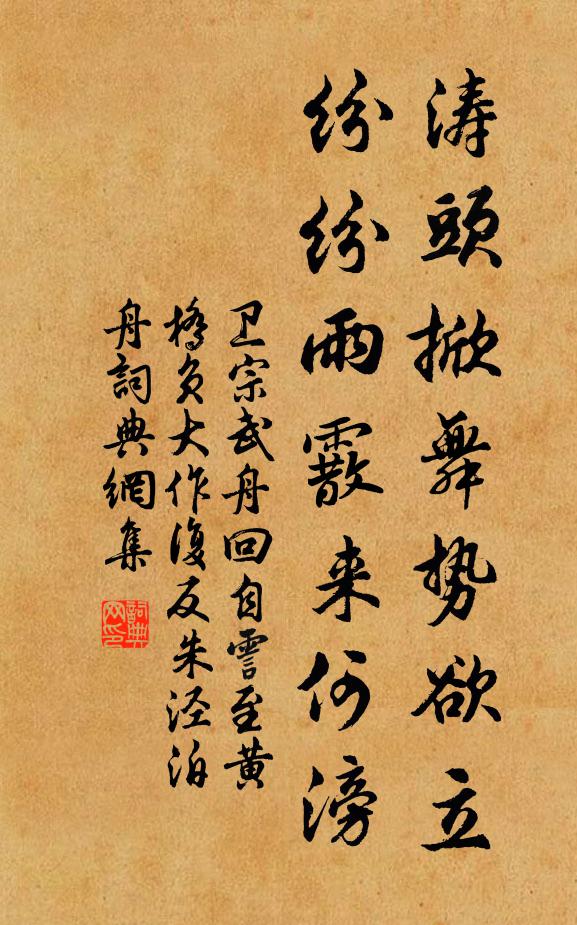 涛頭掀舞势欲立
紛紛雨霰来何滂
卫宗武舟回自霅至黄
橋负大作復反朱泾泊
舟詞典網集
詞典网印